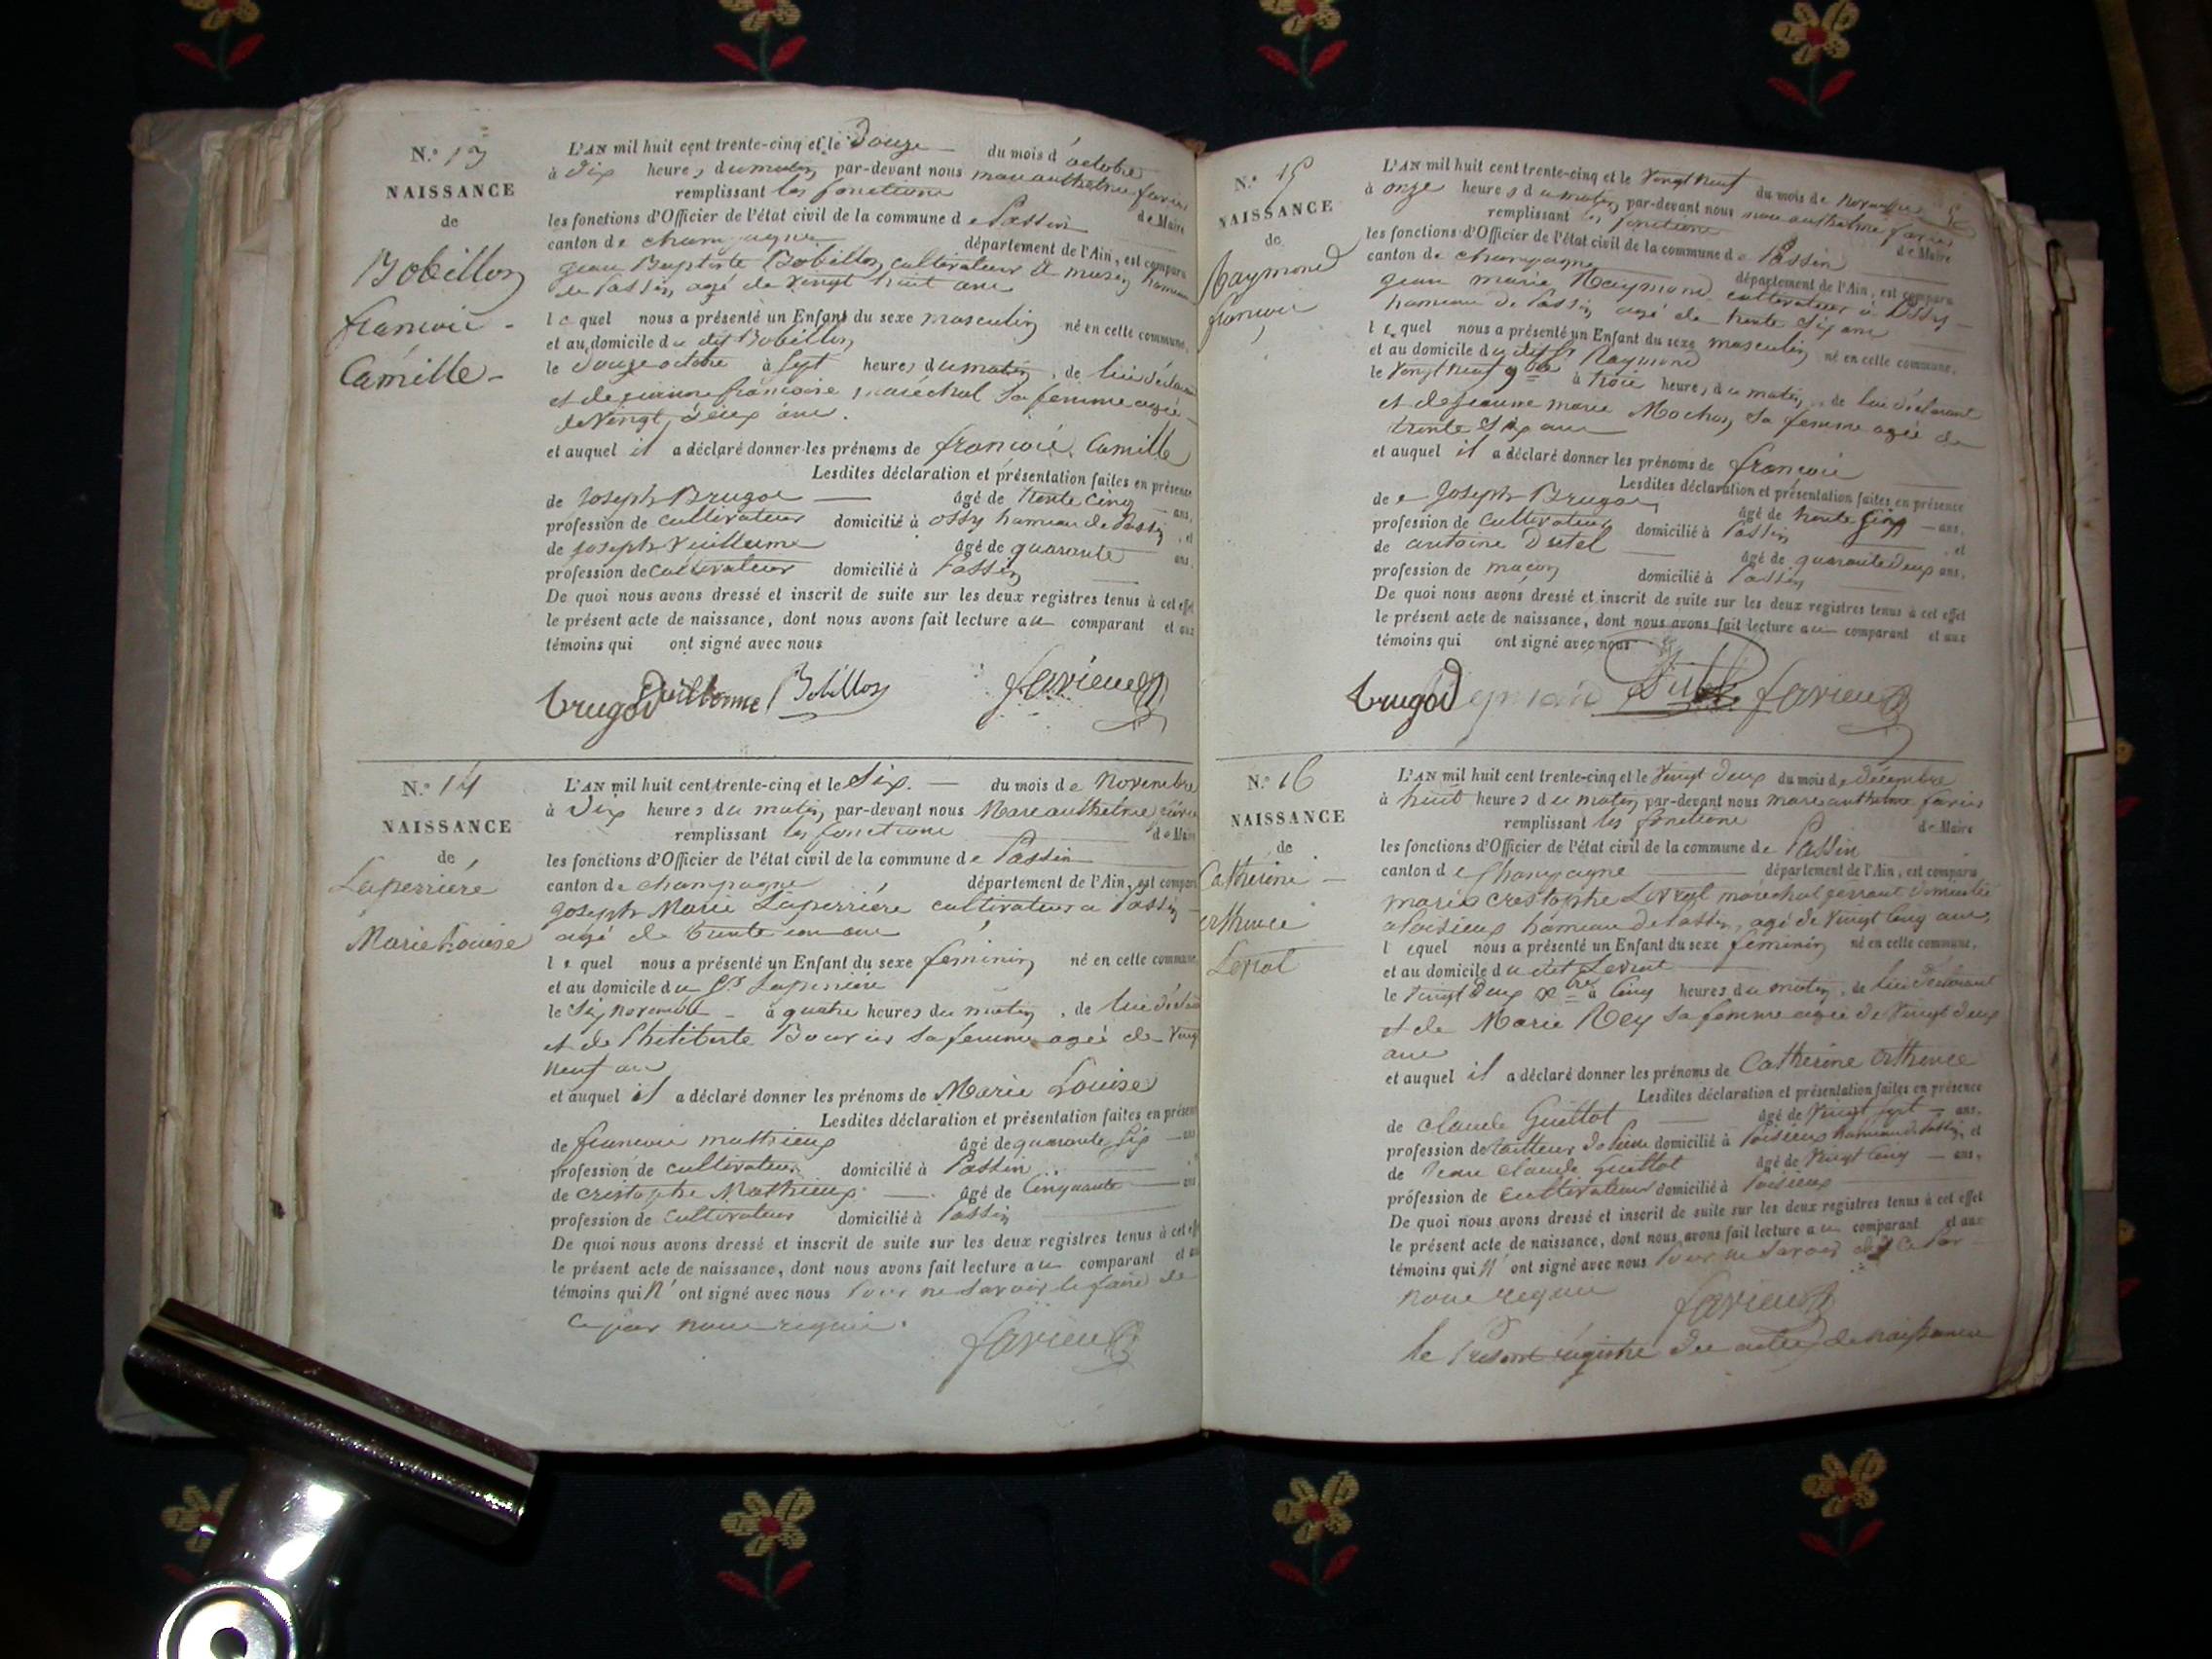 N.º 13
NAISSANCE
de
Bobillon
francois
Camille
L'AN mil huit cent trente-cinq et le Douze du mois d'octobre
à dix heures du matin par-devant nous marc anthelme favier
remplissant les fonctions de Maire
les fonctions d'Officier de l'état civil de la commune de Passin
canton de champagne département de l'Ain, est comparu
jean Baptiste Bobillon cultivateur à musin hameau
de Passin, agé de vingt huit ans
lequel nous a présenté un Enfant du sexe masculin né en cette commune,
et au domicile du dit Bobillon
le douze octobre à sept heures du matin, de lui déclarant
et de françoise maréchal sa femme agée
de Vingt deux ans.
et auquel il a déclaré donner les prénoms de francois Camille
Lesdites déclaration et présentation faites en présence
de Joseph Brugod âgé de trente cinq ans,
profession de cultivateur domicilié à ossy hameau de Passin, et
de joseph Vuillerme âgé de quarante ans,
profession de cultivateur domicilié à Passin
De quoi nous avons dressé et inscrit de suite sur les deux registres tenus à cet effet
le présent acte de naissance, dont nous avons fait lecture au comparant et aux
témoins qui ont signé avec nous
brugod Bobillon favier
N.º 14
NAISSANCE
de
Laperrière
Marie Louise
L'AN mil huit cent trente-cinq et le Six du mois de Novembre
à Dix heures du matin, par-devant nous Marc anthelme favier
remplissant les fonctions de Maire
les fonctions d'Officier de l'état civil de la commune de Passin
canton de champagne département de l'Ain, est comparu
joseph Marie Laperrière cultivateur a Passin
agé de trente un ans
lequel nous a présenté un Enfant du sexe feminin né en cette commune
et au domicile du Sr Laperrière
le Six novembre à quatre heures du matin, de lui déclarant
et de Philiberte Bouvier sa femme agée de Vingt
neuf ans
et auquel il a déclaré donner les prénoms de Marie Louise
Lesdites déclaration et présentation faites en présence
de francois mathieux âgé de quarante Six ans
profession de cultivateur domicilié à Passin
de cristophe Mathieux âgé de Cinquante ans
profession de cultivateur domicilié à Passin
De quoi nous avons dressé et inscrit de suite sur les deux registres tenus à cet effet
le présent acte de naissance, dont nous avons fait lecture au comparant et aux
témoins qui n'ont signé avec nous Pour ne savoir le faire de
ce par nous requis.
favier
N.º 15
NAISSANCE
de
Raymond
francois
L'AN mil huit cent trente-cinq et le Vingt neuf du mois de Novembre
à onze heures du matin, par-devant nous marc anthelme favier
remplissant les fonctions de Maire
les fonctions d'Officier de l'état civil de la commune de Passin
canton de champagne département de l'Ain, est comparu
jean marie Raymond cultivateur à Ossy
hameau de Passin agé de trente Six ans
lequel nous a présenté un Enfant du sexe masculin né en cette commune,
et au domicile du dit Sr Raymond
le Vingt neuf 9bre à trois heures du matin, de lui déclarant
et de jeanne marie Mochon sa femme agée de
trente Six ans
et auquel il a déclaré donner les prénoms de francois
Lesdites déclaration et présentation faites en présence
de Joseph Brugod âgé de trente cinq ans,
profession de cultivateur domicilié à Passin, et
de antoine Dutel âgé de quarante deux ans,
profession de maçon domicilié à Passin
De quoi nous avons dressé et inscrit de suite sur les deux registres tenus à cet effet
le présent acte de naissance, dont nous avons fait lecture au comparant et aux
témoins qui ont signé avec nous
brugod Dutel favier
N.º 16
NAISSANCE
de
Catherine
Levrat
L'AN mil huit cent trente-cinq et le Vingt deux du mois de décembre
à huit heures du matin, par-devant nous marc anthelme favier
remplissant les fonctions de Maire
les fonctions d'Officier de l'état civil de la commune de Passin
canton de Champagne département de l'Ain, est comparu
marie cristophe Levrat maréchal ferrant domicilié
a Poisieux hameau de Passin, agé de Vingt Cinq ans,
lequel nous a présenté un Enfant du sexe féminin né en cette commune,
et au domicile du dit Levrat
le Vingt deux Xbre à Cinq heures du matin, de lui déclarant
et de Marie Rey sa femme agée de Vingt deux
ans
et auquel il a déclaré donner les prénoms de Catherine
Lesdites déclaration et présentation faites en présence
de claude Guillot âgé de Vingt sept ans,
profession de tailleur domicilié à Poisieux hameau de Passin, et
de Jean claude guillot âgé de Vingt Cinq ans,
profession de cultivateur domicilié à Poisieux
De quoi nous avons dressé et inscrit de suite sur les deux registres tenus à cet effet
le présent acte de naissance, dont nous avons fait lecture au comparant et aux
témoins qui n'ont signé avec nous Pour ne Savoir de ce Par
nous requis
favier
le Présent registre des actes de naissance